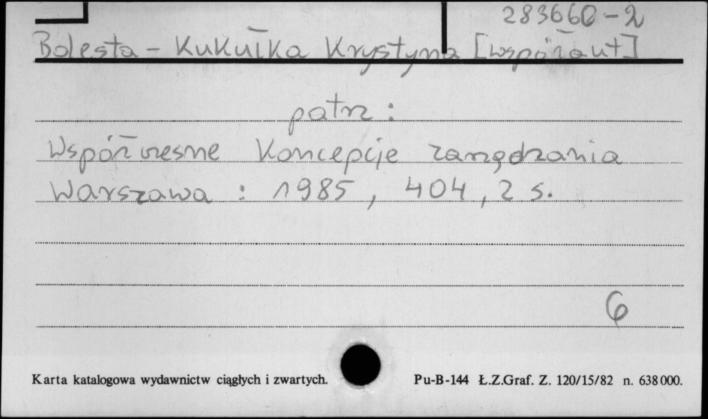 283660-2
Bolesta-Kukułka Krystyna [współaut]
patrz:
Współczesne Koncepcje zarządzania
Warszawa : 1985, 404, 2 s.
6
Karta katalogowa wydawnictw ciągłych i zwartych. Pu-B-144 Ł.Z.Graf. Z. 120/15/82 n. 638000.